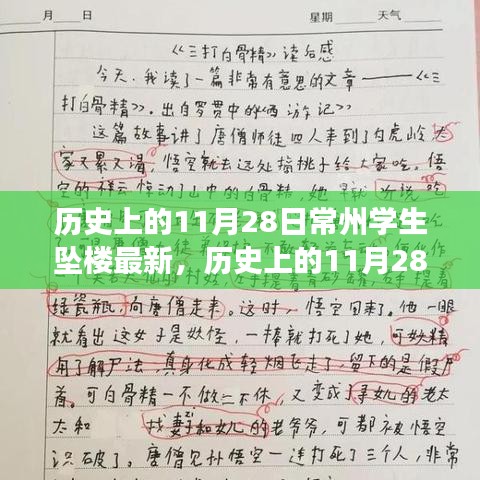 月 日 星期 天气
《三打白骨精》读后感
今天，我读了一篇非常有意思的文章——《三
打白骨精》。出自罗贯中的《西游记》
这篇故事讲了唐僧师徒四人来到了白虎岭，大
家又累又渴，悟空就去远处摘桃子给大家吃。悟
历史上的11月28日常州学生
坠楼最新，历史上的11月28
绿瓷瓶，向唐僧走来。这时，悟空回来了。他一眼
就看出这女子是妖怪，一棒就打死了她，可妖精
用了解尸法，真身化成轻烟飞走了，留下的是假尸
首。可白骨精一不做二不休，又变成了寻女儿的老太
太和 找妻和女儿的老爷爷，可都被悟空
识破了。唐僧见孙悟空一连打死了三个人，非常